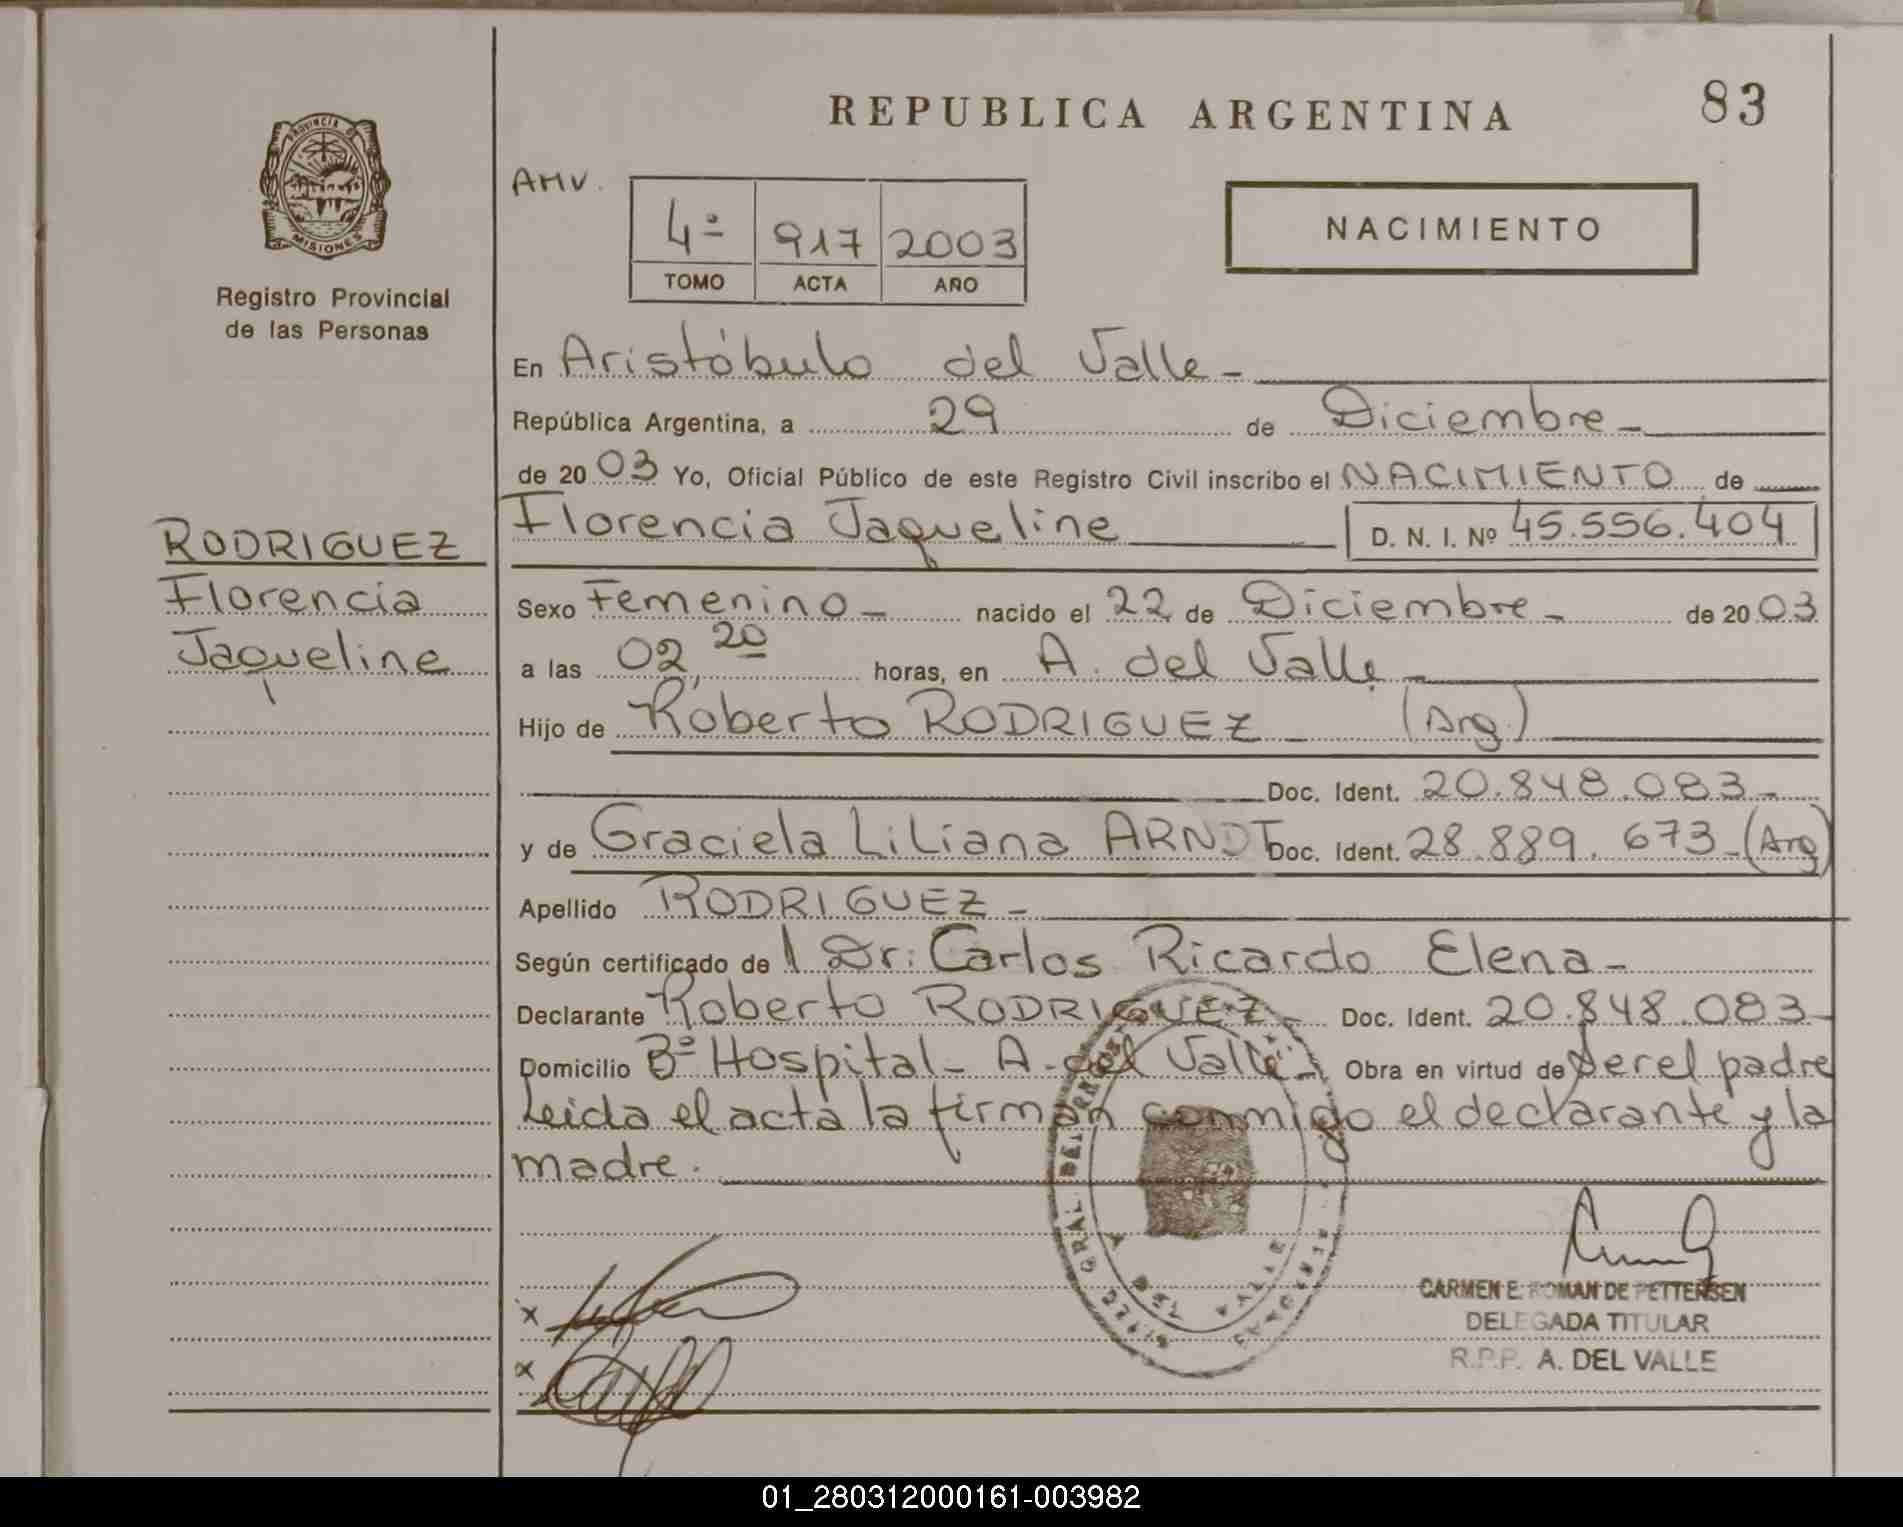 REPUBLICA ARGENTINA
83
PROVINCIA DE
MISIONES
Registro Provincial
de las Personas
AMV.
4º 917 2003
TOMO ACTA AÑO
NACIMIENTO
En Aristóbulo del Valle -
República Argentina, a 29 de Diciembre -
de 20 03 Yo, Oficial Público de este Registro Civil inscribo el NACIMIENTO de
Florencia Jaqueline D. N. I. Nº 45.556.404
RODRIGUEZ
Florencia
Jaqueline
Sexo Femenino - nacido el 22 de Diciembre - de 20 03
a las 02,20 horas, en A. del Valle -
Hijo de Roberto RODRIGUEZ - (Arg.)
Doc. Ident. 20.848.083 -
y de Graciela Liliana ARNDT Doc. Ident. 28.889.673 - (Arg)
Apellido RODRIGUEZ -
Según certificado de l Dr: Carlos Ricardo Elena -
Declarante Roberto RODRIGUEZ - Doc. Ident. 20.848.083 -
Domicilio Bº Hospital - A. del Valle - Obra en virtud de ser el padre
Leida el acta la firman conmigo el declarante y la
madre.
CARMEN E. ROMAN DE PETTERSEN
DELEGADA TITULAR
R.P.P. A. DEL VALLE
x
x
01_280312000161-003982